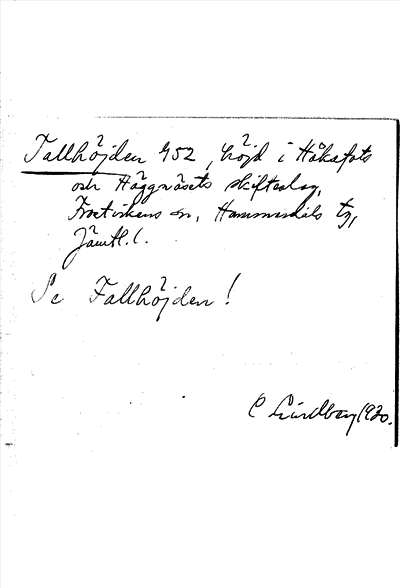 Tallhöjden 952, höjd i Håkafots
och Häggnäsets skifteslag,
Frostvikens sn, Hammerdals tg,
Jämtl. l.
Se Fallhöjden!
C Lindberg 1930.